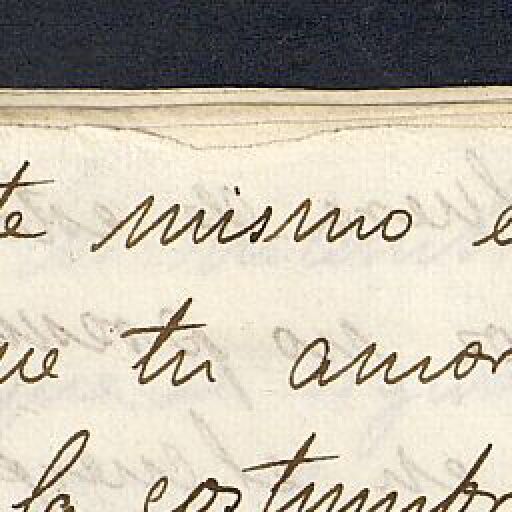 te mismo e
ue tu amor
la costumbr